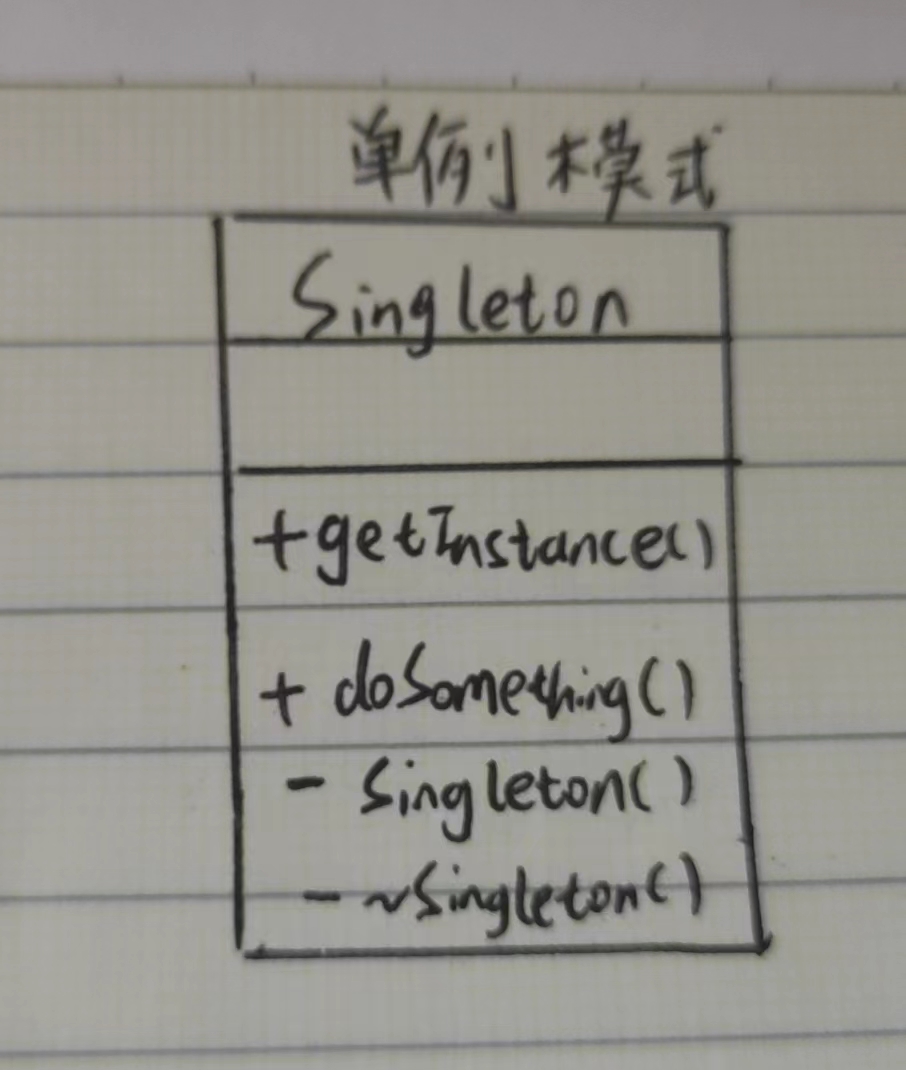 单例模式
Singleton
+getInstance()
+ doSomething()
- Singleton()
- ~Singleton()